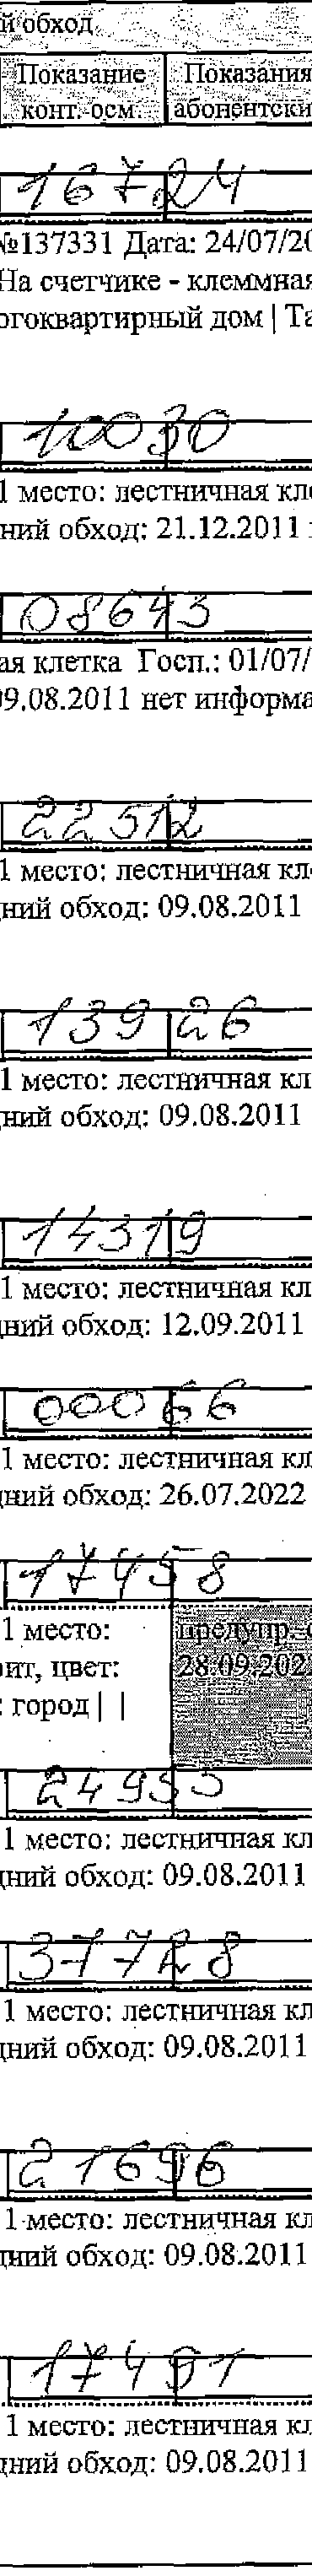 й обход
Показание Показания
конт. осм. абонентски
16724
№137331 Дата: 24/07/20
На счетчике - клеммная
огоквартирный дом | Та
10030
1 место: лестничная кл
ний обход: 21.12.2011
08643
ая клетка Госп.: 01/07/
09.08.2011 нет информа
22512
1 место: лестничная кл
ний обход: 09.08.2011
13926
1 место: лестничная кл
ний обход: 09.08.2011
14319
1 место: лестничная кл
ний обход: 12.09.2011
00066
1 место: лестничная кл
ний обход: 26.07.2022
17458
1 место: предупр.
рит, цвет: 28.09.202
: город | |
24955
1 место: лестничная кл
ний обход: 09.08.2011
37728
1 место: лестничная кл
ний обход: 09.08.2011
21696
1 место: лестничная кл
ний обход: 09.08.2011
17491
1 место: лестничная кл
ний обход: 09.08.2011